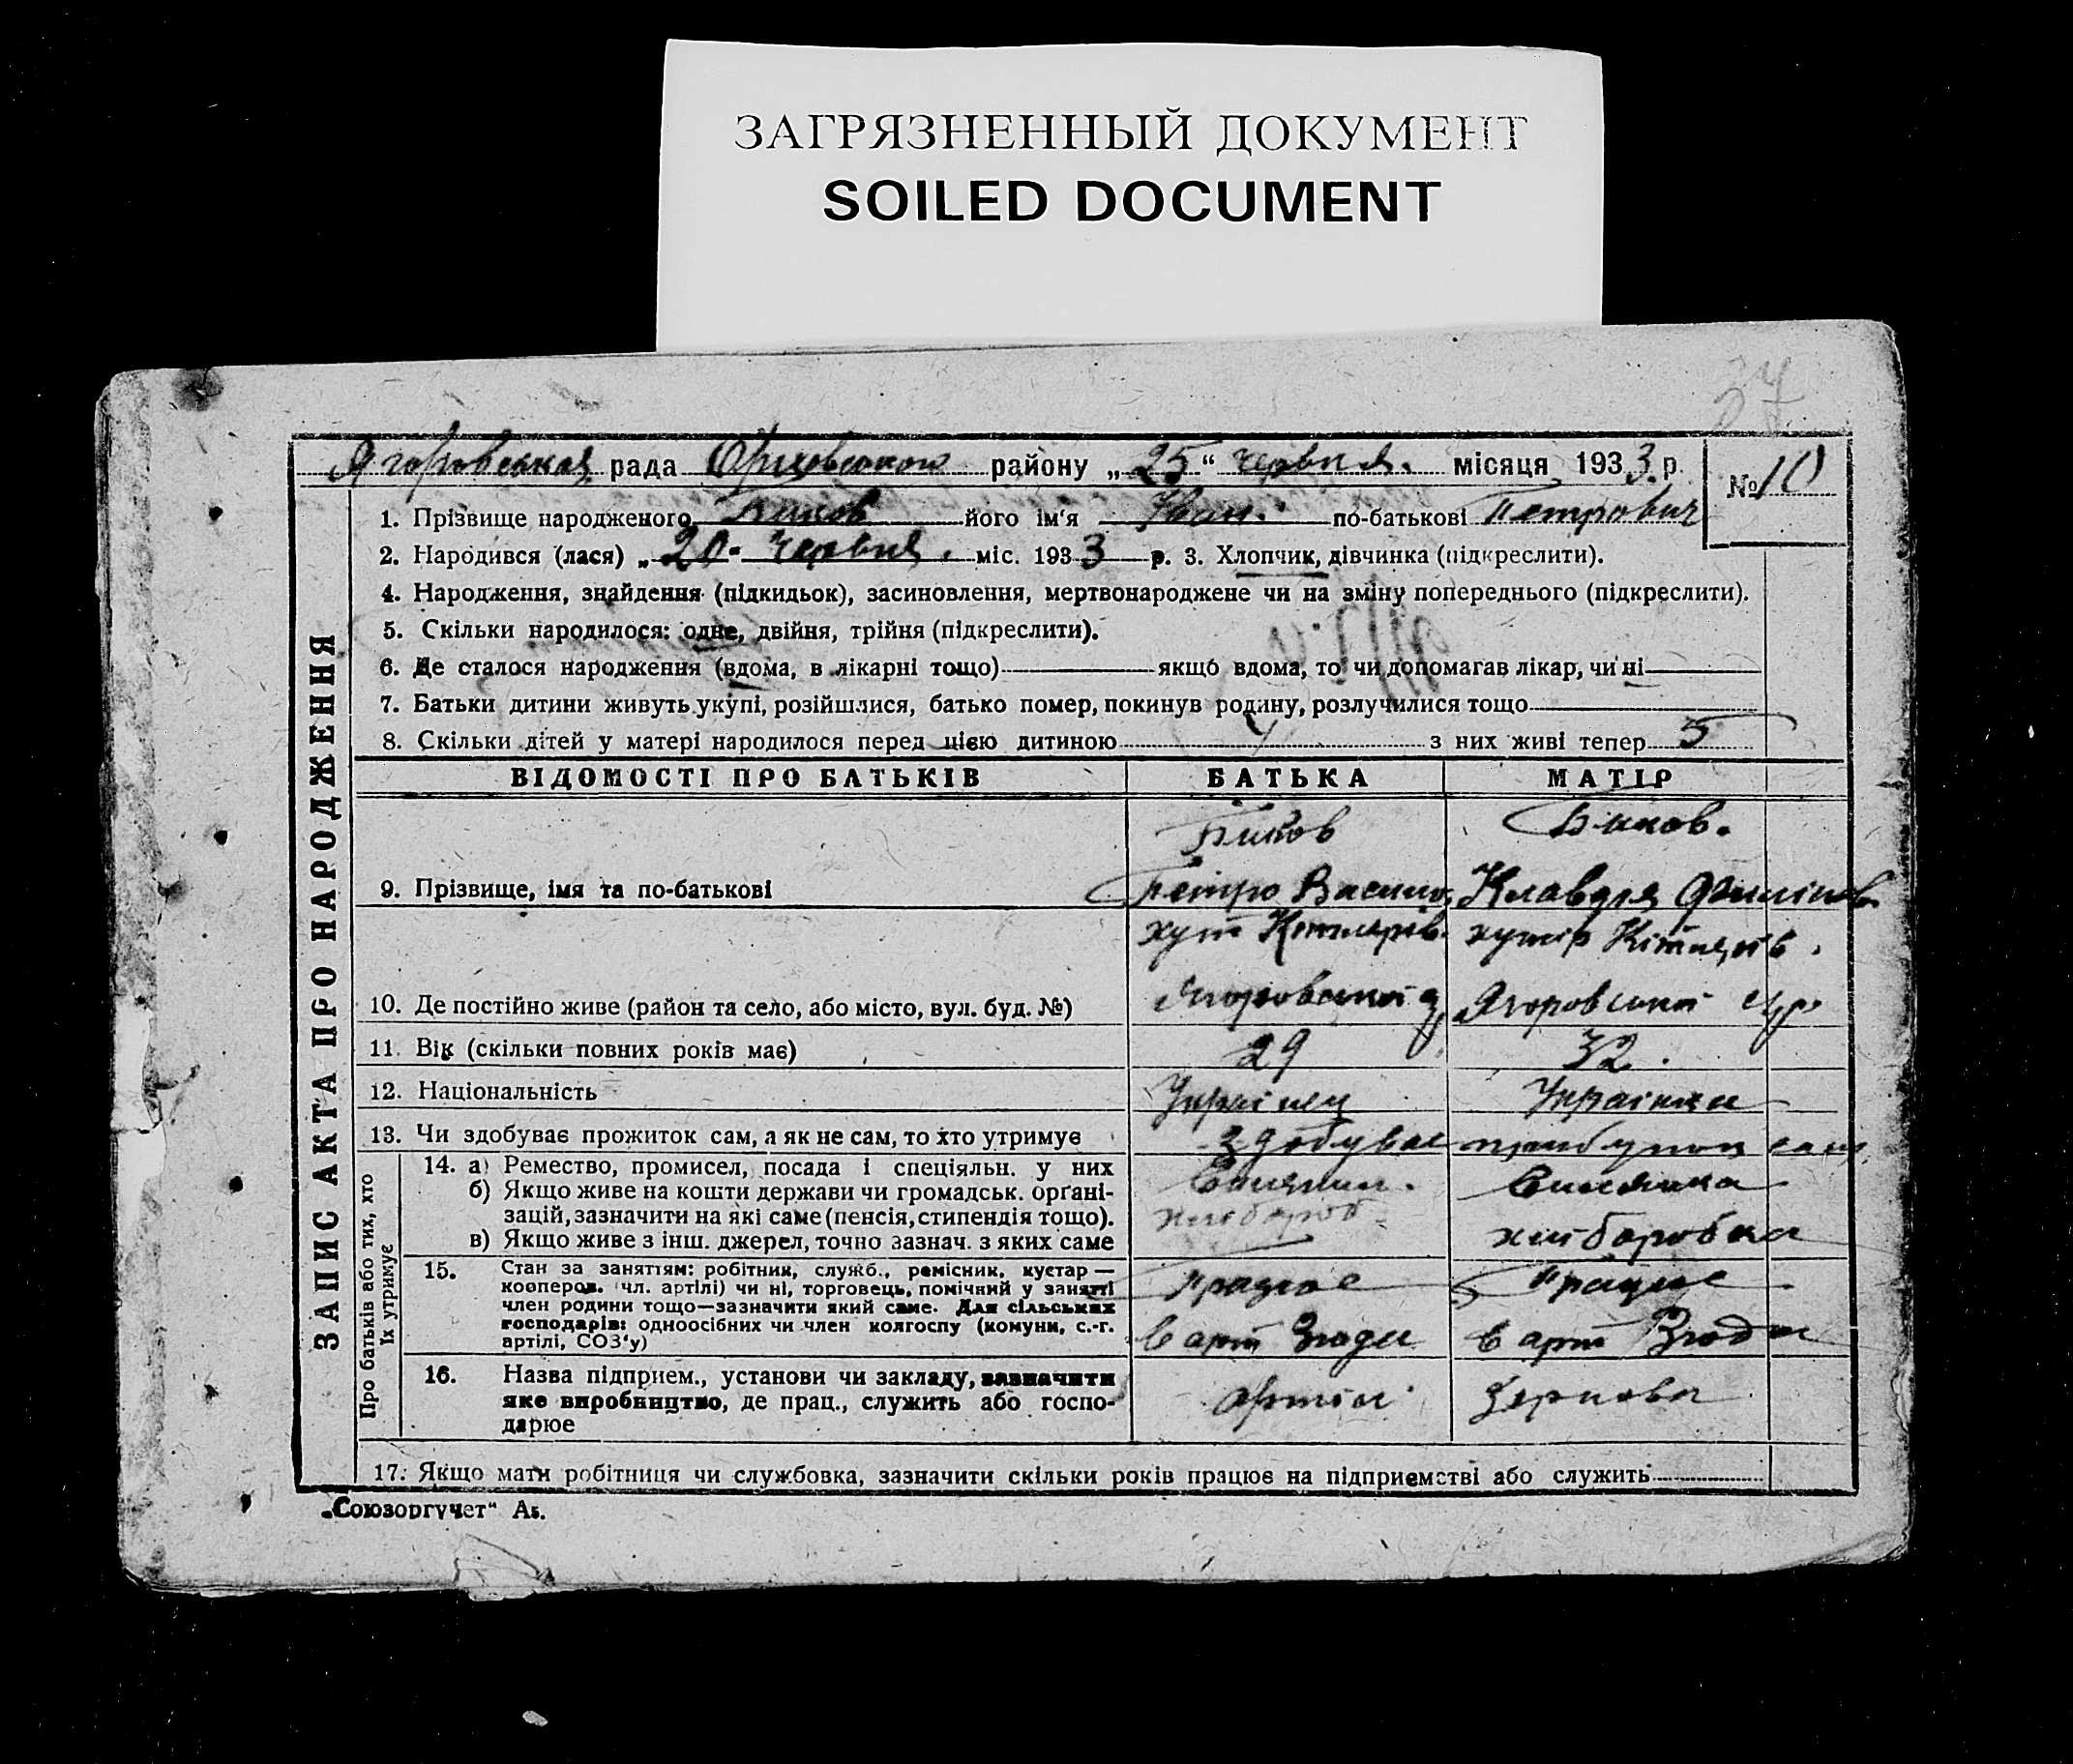 ЗАГРЯЗНЕННЫЙ ДОКУМЕНТ
SOILED DOCUMENT
27
Ягоровська рада району „25“ червня. місяця 1933 р.
№ 10
1. Прізвище народженого Биков його ім'я Іван. по-батькові Петрович
2. Народився (лася) „20" червня. міс. 1933 р. 3. Хлопчик, дівчинка (підкреслити).
4. Народження, знайдення (підкидьок), засиновлення, мертвонароджене чи на зміну попереднього (підкреслити).
5. Скільки народилося: одне, двійня, трійня (підкреслити).
6. Де сталося народження (вдома, в лікарні тощо) якщо вдома, то чи допомагав лікар, чи ні
7. Батьки дитини живуть укупі, розійшлися, батько помер, покинув родину, розлучилися тощо
8. Скільки дітей у матері народилося перед цією дитиною 4 з них живі тепер 5
ЗАПИС АКТА ПРО НАРОДЖЕННЯ
ВІДОМОСТІ ПРО БАТЬКІВ БАТЬКА МАТІР
Биков Биков.
9. Прізвище, імя та по-батькові Петро Василь Клавдія Филипов
хут хутір
10. Де постійно живе (район та село, або місто, вул. буд. №) Ягоровської Ягоровської
11. Вік (скільки повних років має) 29 32.
12. Національність Українец Українка
13. Чи здобуває прожиток сам, а як не сам, то хто утримує здобуває
Про батьків або тих, хто їх утримує
14. а) Ремество, промисел, посада і спеціяльн. у них
б) Якщо живе на кошти держави чи громадськ. органі-
зацій, зазначити на які саме (пенсія, стипендія тощо).
в) Якщо живе з інш. джерел, точно зазнач. з яких саме
Селянин. Селянка
хлібороб хліборобка
15. Стан за заняттям: робітник, служб., ремісник, кустар —
кооперов. чл. артілі) чи ні, торговець, помічний у занятті
член родини тощо—зазначити який саме. Для сільських
господарів: одноосібних чи член колгоспу (комуни, с.-г.
артілі, СОЗ'у)
працює працює
в арт Згода в арт Згода
16. Назва підприєм., установи чи закладу, зазначити
яке виробництво, де прац., служить або госпо-
дарює
артіл Зернова
17. Якщо мати робітниця чи службовка, зазначити скільки років працює на підприємстві або служить
„Союзоргучет“ А₅.